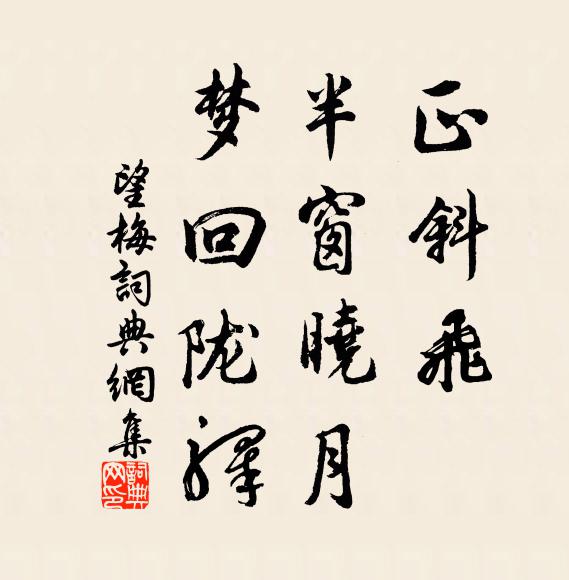 正斜飛
半窗曉月
梦回陇驛
望梅詞典網集
詞典網印